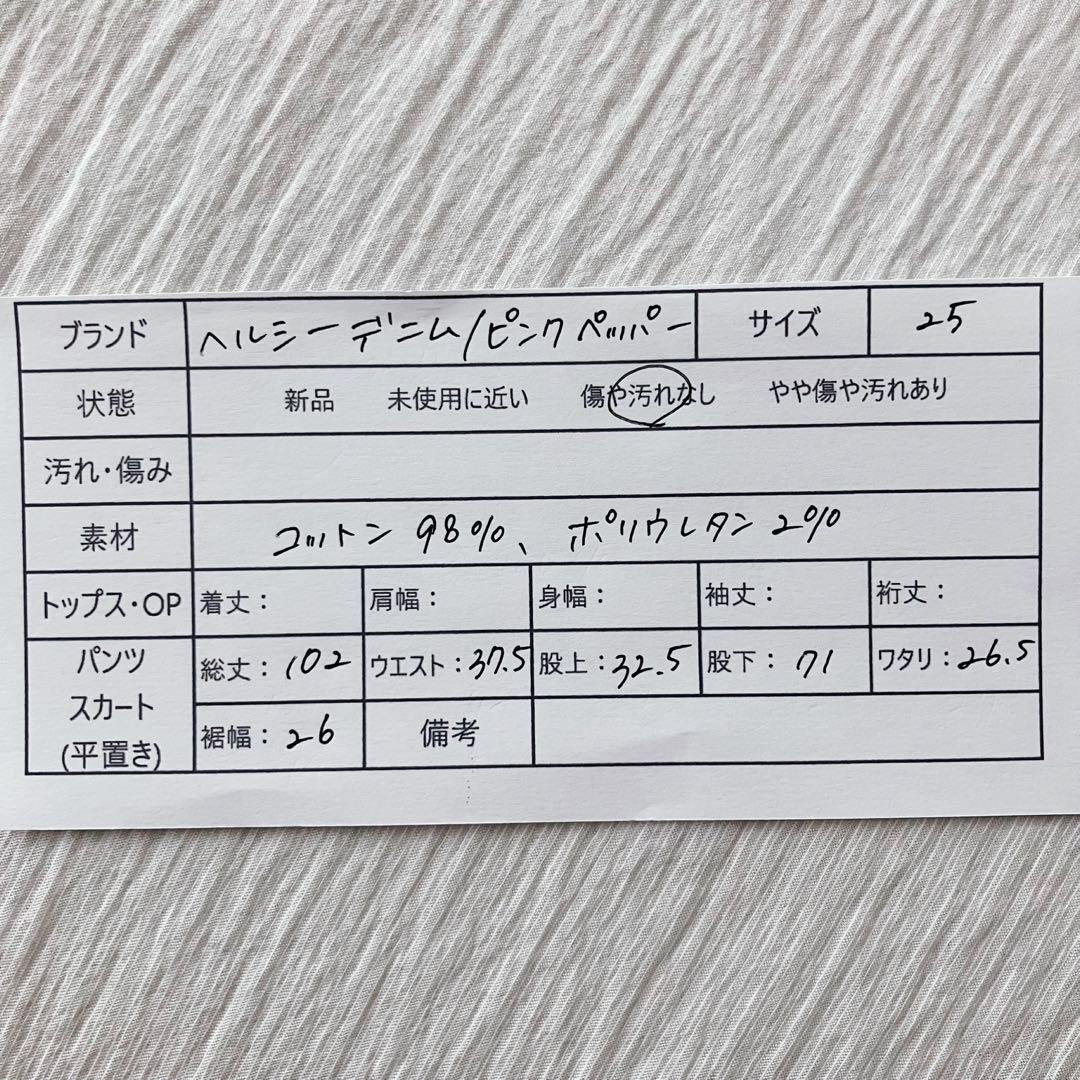 ブランド ヘルシーデニム/ピンクペッパー サイズ 25
状態 新品 未使用に近い 傷や汚れなし やや傷や汚れあり
汚れ・傷み
素材 コットン 98%、ポリウレタン 2%
トップス・OP 着丈： 肩幅： 身幅： 袖丈： 裄丈：
パンツ
スカート
(平置き)
総丈：102 ウエスト：37.5 股上：32.5 股下：71 ワタリ：26.5
裾幅：26 備考